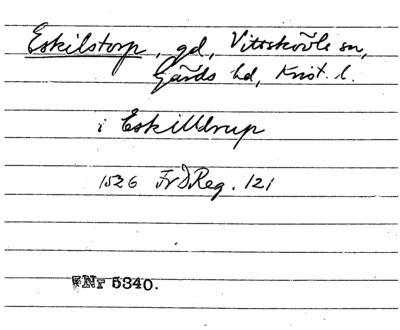 Eskilstorp, gd, Vittskövle sn,
Gärds hd, Krist. l.
i Eskilldrup
1526 FrDReg. 121
Nr 5340.